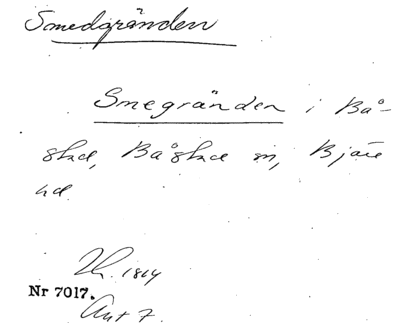 Smedgränden
Smegränden i Bå-
stad, Båstad sn, Bjäre
hd.
1814
Nr 7017.
Ant 7.